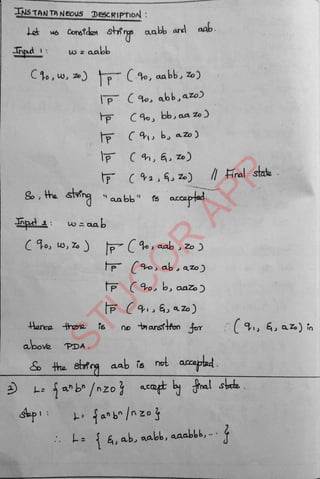 INSTANTANEOUS DESCRIPTION :
Let us consider strings aabb and aab.
Input 1 : w = aabb
(q0, w, z0) ⊢P (q0, aabb, z0)
⊢P (q0, abb, az0)
⊢P (q0, bb, aaz0)
⊢P (q1, b, az0)
⊢P (q1, ε, z0)
⊢P (q2, ε, z0) // Final state.
So, the string "aabb" is accepted
Input 2 : w = aab
(q0, w, z0) ⊢P (q0, aab, z0)
⊢P (q0, ab, az0)
⊢P (q0, b, aaz0)
⊢P (q1, ε, az0)
Hence there is no transition for (q1, ε, az0) in
above PDA.
So the string aab is not accepted.
2) L = {a^n b^n / n≥0} accept by final state.
Step 1 : L = {a^n b^n / n≥0}
∴ L = {ε, ab, aabb, aaabbb, ... }
STUCOR APP